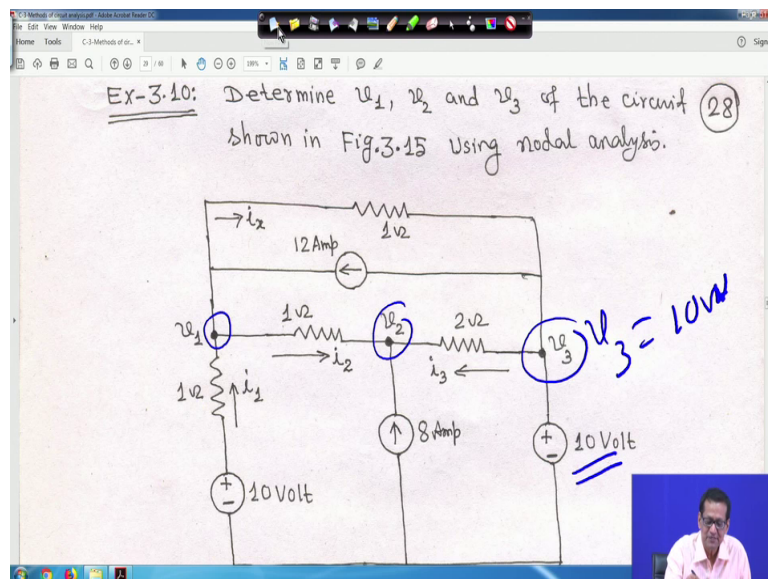 C-3-Methods of circuit analysis.pdf - Adobe Acrobat Reader DC
File Edit View Window Help
Home Tools C-3-Methods of cir... × Sign
29 / 60 189%
Ex-3.10: Determine v1, v2 and v3 of the circuit 28
shown in Fig.3.15 using nodal analysis.
ix
1Ω
12 Amp
v1 1Ω v2 2Ω v3 v3 = 10V
i2 i3
1Ω i1
8 Amp
10 Volt
10 Volt